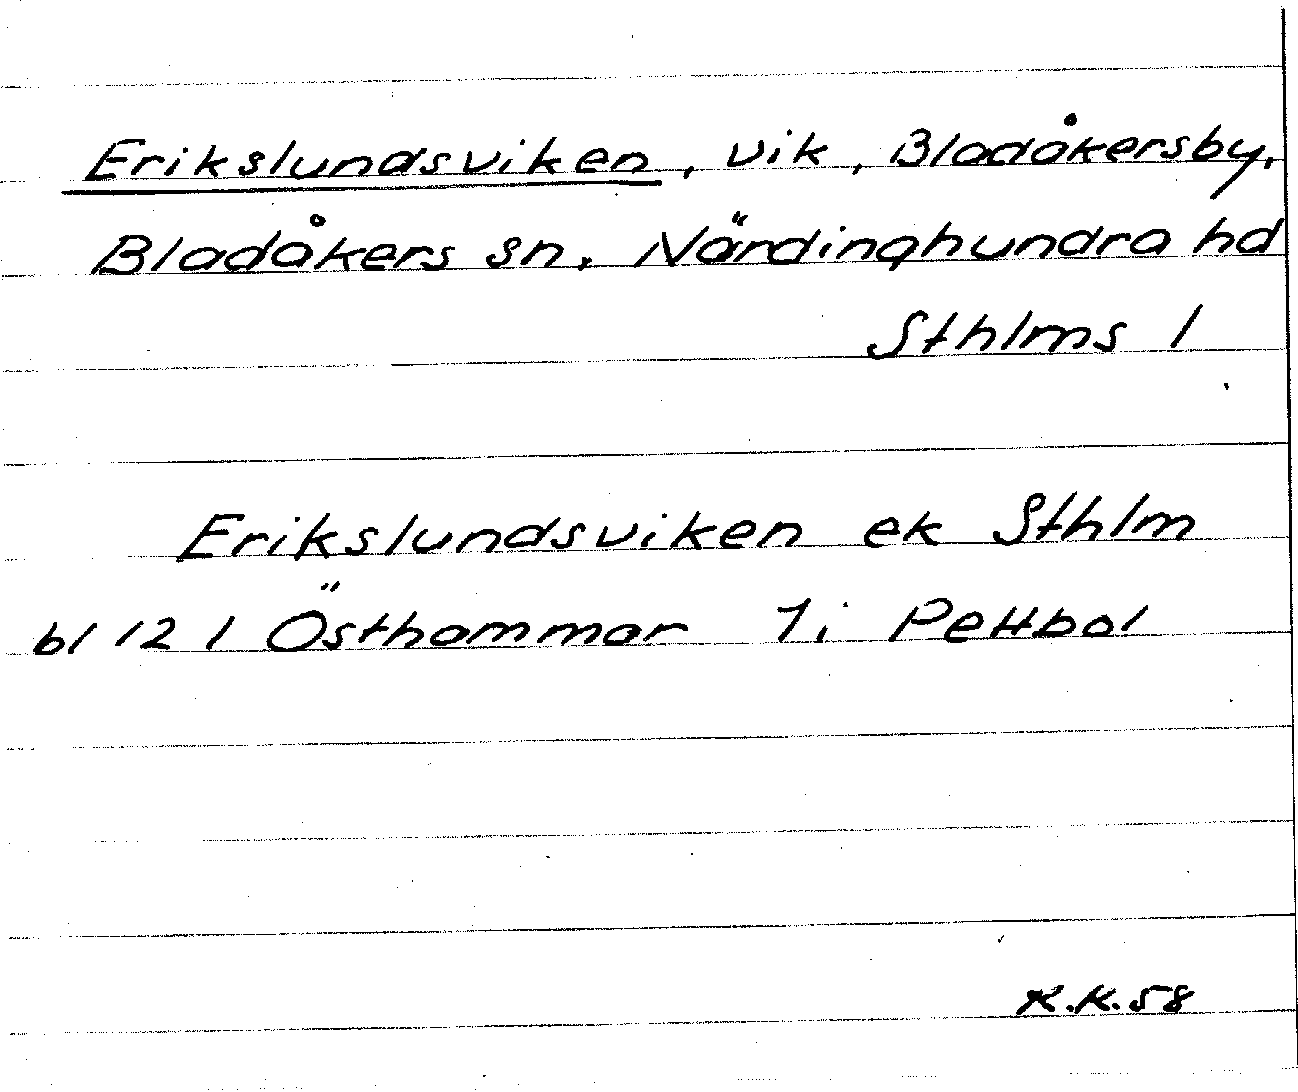 Erikslundsviken, vik, Bladåkersby,
Bladåkers sn, Närdinghundra hd
Sthlms l
Erikslundsviken ek Sthlm
bl 121 Östhammar 7i Pettbol
K.K.58